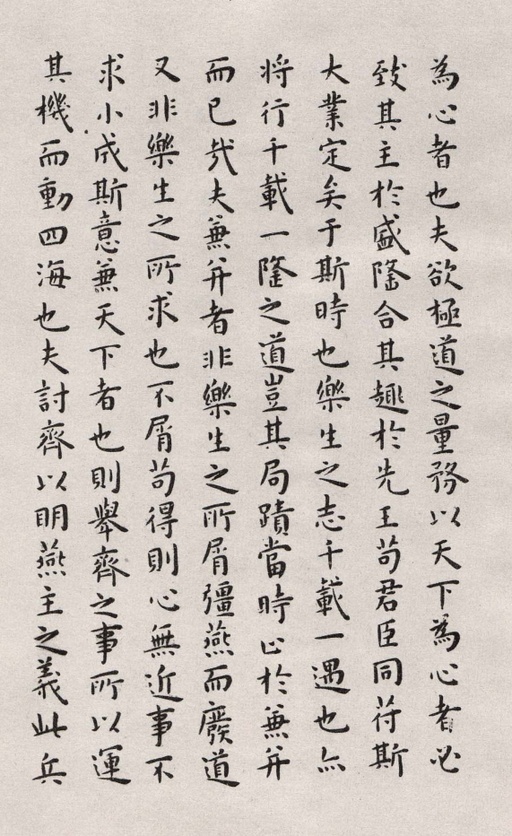 為心者也夫欲極道之量務以天下為心者必
致其主於盛隆合其趣於先王苟君臣同符斯
大業定矣于斯時也樂生之志千載一遇也亦
将行千載一隆之道豈其局蹟當時止於蒹并
而已哉夫蒹并者非樂生之所屑彊燕而廢道
又非樂生之所求也不屑苟得則心無近事不
求小成斯意蒹天下者也則舉齊之事所以運
其機而動四海也夫討齊以明燕主之義此兵